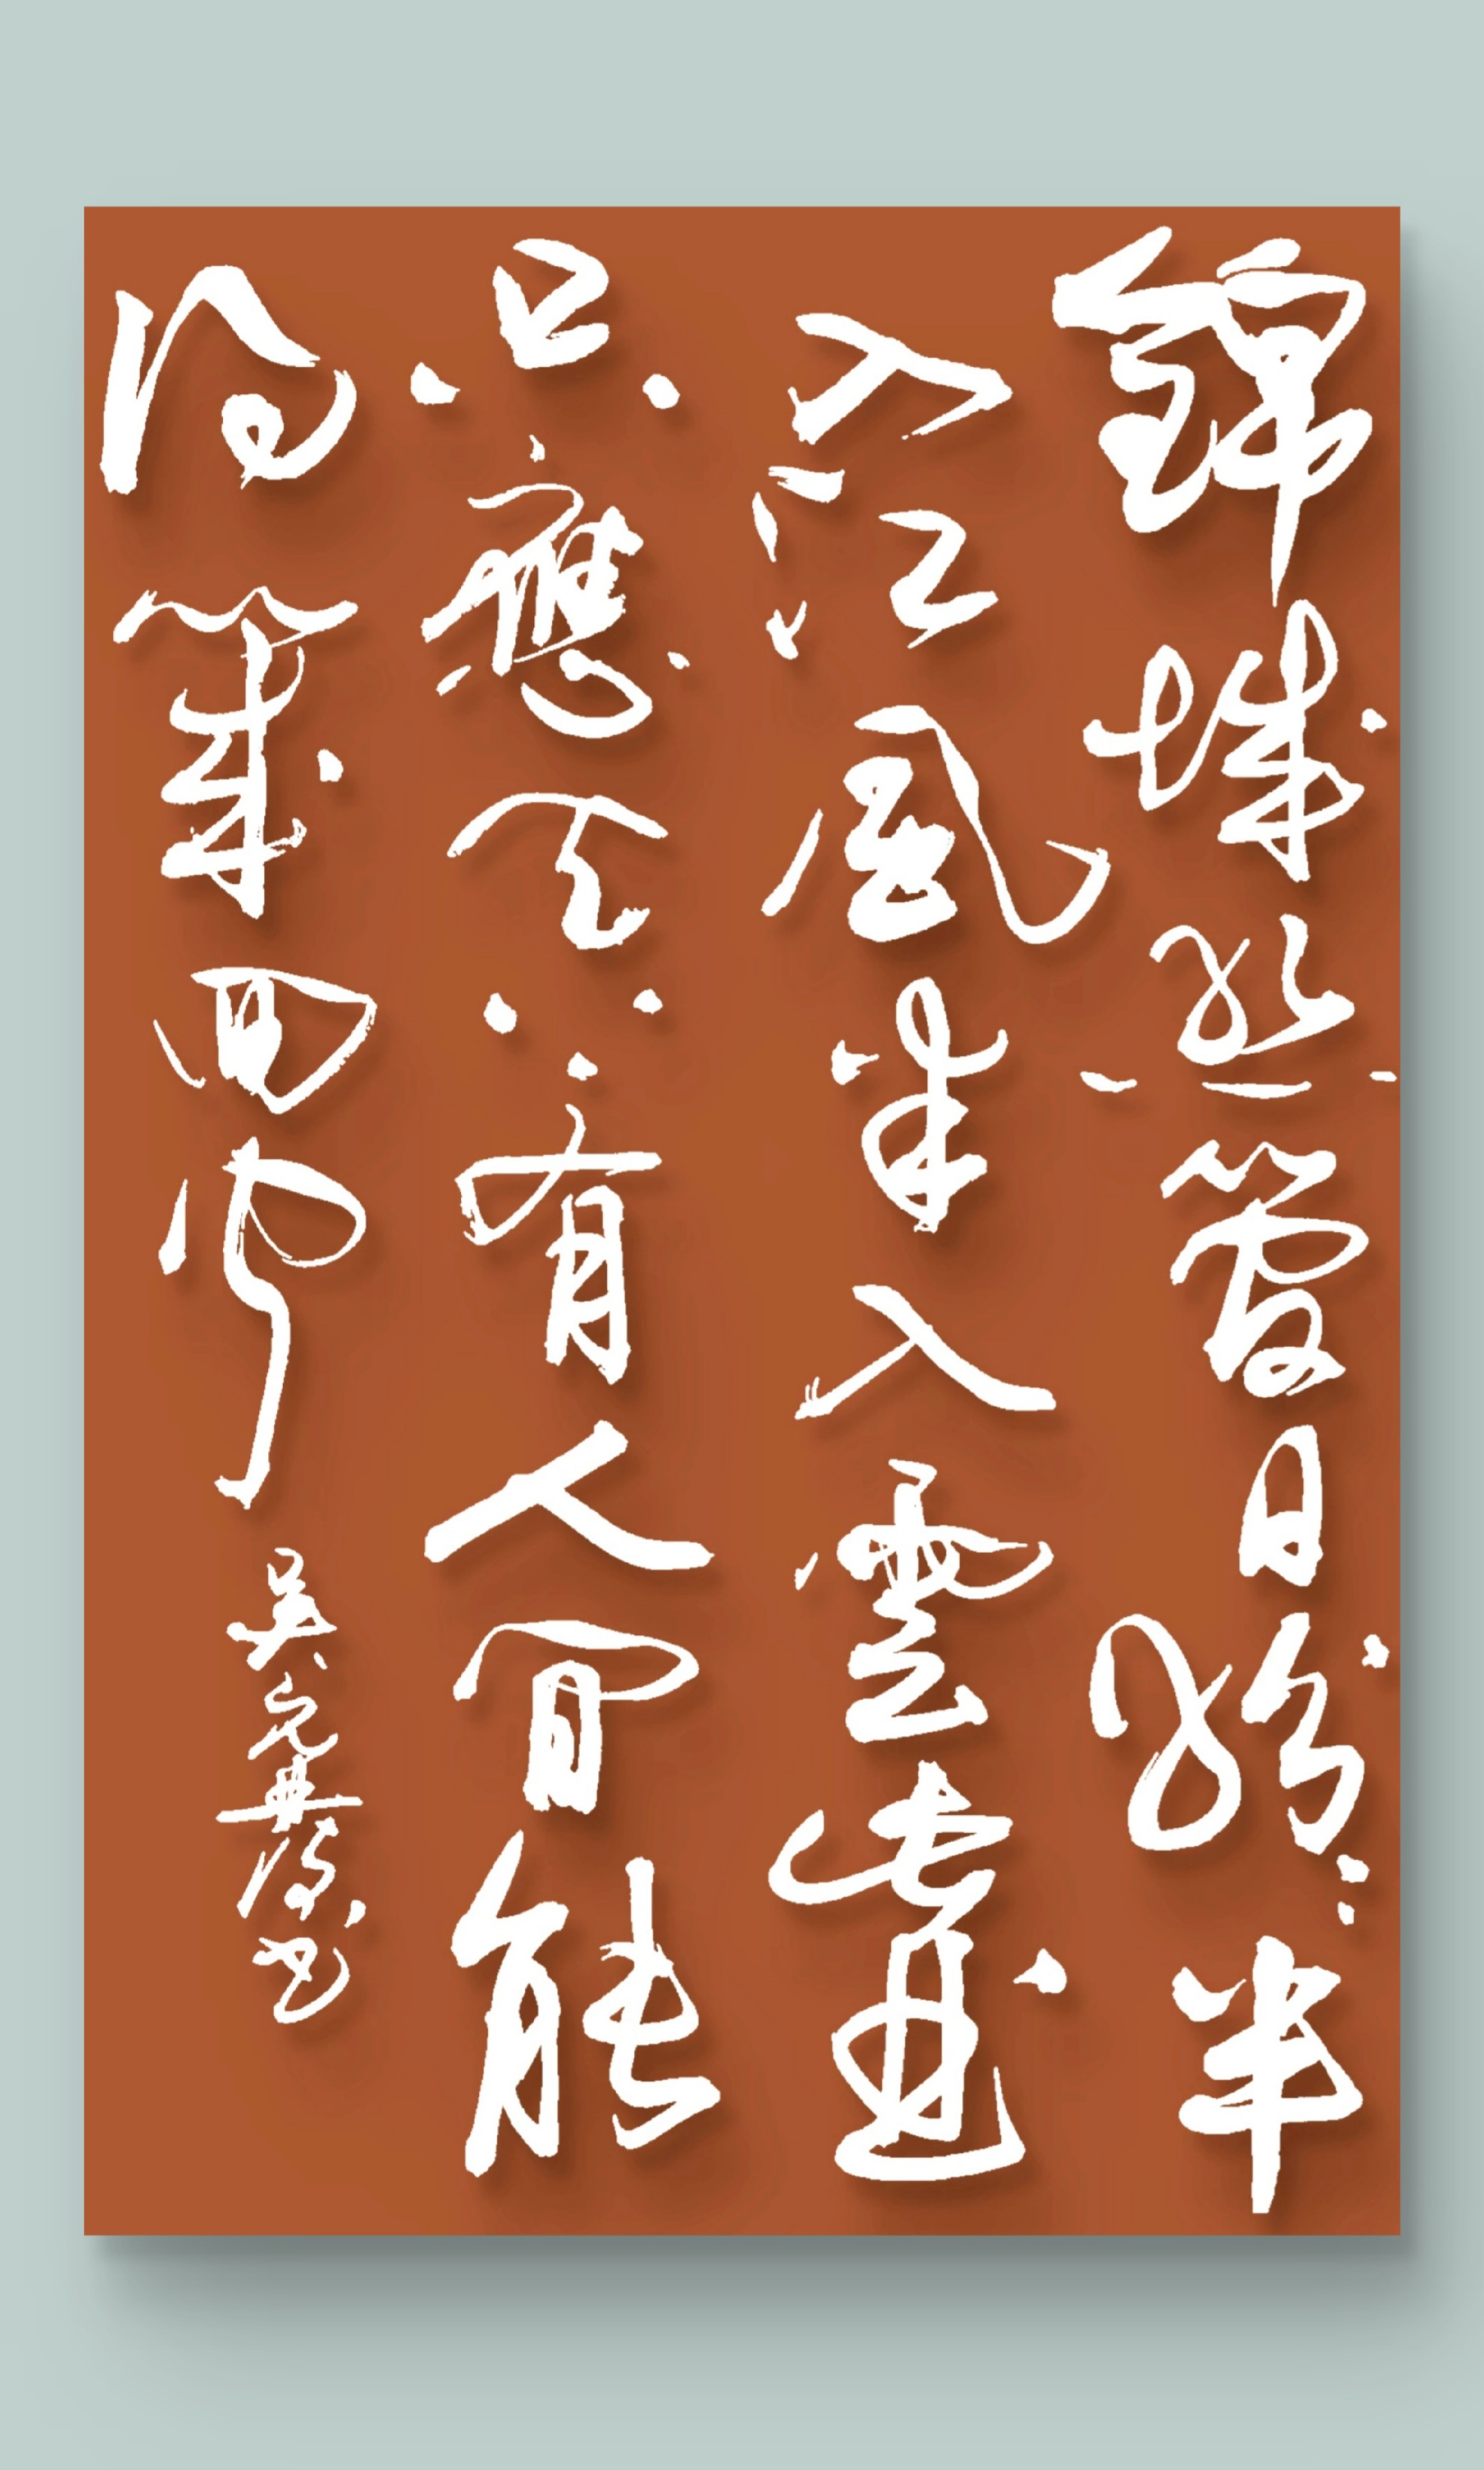 錦城絲管日紛々半
入江風半入雲此曲
只應天上有人間能
得幾回聞
吳元書